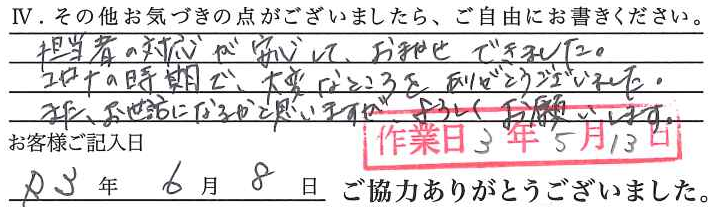 Ⅳ．その他お気づきの点がございましたら、ご自由にお書きください。
担当者の対応が安心して、おまかせできました。
コロナの時期で、大変なところをありがとうございました。
また、お世話になるかと思いますが、よろしくお願いします。
作業日 3年5月13日
お客様ご記入日
R3年 6月 8日 ご協力ありがとうございました。